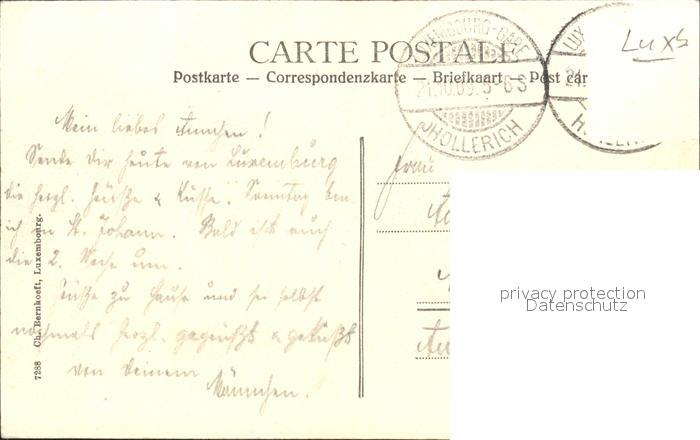 Luxb
LUXEMBOURG-GARE
21.10.09. 5-6 S
HOLLERICH
LUX
21.
CARTE POSTALE
Postkarte — Correspondenzkarte — Briefkaart — Post car
Mein liebes Annchen!
Sende dir heute von Luxemburg
die herzl. Grüße & Küsse. Sonntag bin
ich in St. Johann. Bald ist auch
die 2. Woche um.
Grüße zu Hause und sei selbst
nochmals herzl. gegrüßt & geküßt
von deinem
Männchen.
Frau
7288 Ch. Bernhoeft, Luxembourg.
privacy protection
Datenschutz